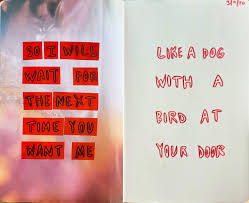 SO I WILL
WAIT FOR
THE NEXT
TIME YOU
WANT ME
LIKE A DOG
WITH A
BIRD AT
YOUR DOOR